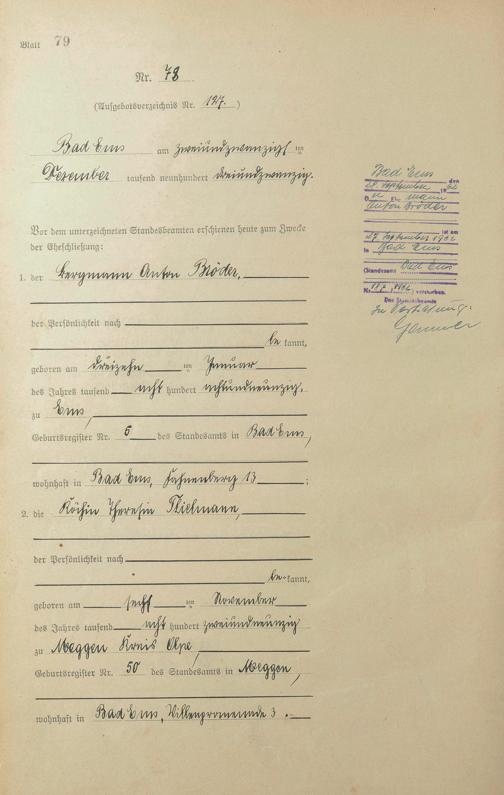 Blatt 79
Nr. 78
(Aufgebotsverzeichnis Nr. 127.)
Bad Ems am zweiundzwanzigsten
Dezember tausend neunhundert dreiundzwanzig.
Vor dem unterzeichneten Standesbeamten erschienen heute zum Zwecke
der Eheschließung:
1. der Bergmann Anton Bröder,
der Persönlichkeit nach
be kannt,
geboren am dreizehn ten Januar
des Jahres tausend acht hundert achtundneunzig.
zu Ems,
Geburtsregister Nr. 6 des Standesamts in Bad Ems,
wohnhaft in Bad Ems, Hahnenberg 13 ;
2. die Köchin Theresia Thielmann,
der Persönlichkeit nach
be kannt,
geboren am sechs ten November
des Jahres tausend acht hundert zweiundneunzig
zu Meggen Kreis Olpe,
Geburtsregister Nr. 50 des Standesamts in Meggen,
wohnhaft in Bad Ems, Villenpromenade 3.
Bad Ems den
28. September 1962
D er Ehemann
Anton Bröder
ist am
27. September 1962
in Bad Ems
(Standesamt Bad Ems
Nr. 197/1962) verstorben.
Der Standesbeamte
In Vertretung: